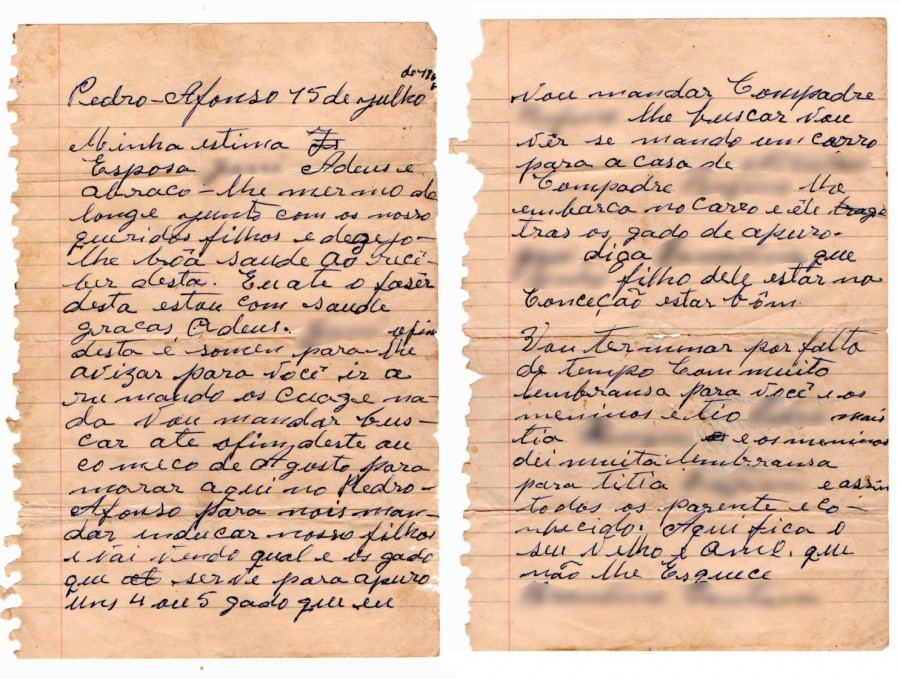 de 196
Pedro-Afonso 15 de julho
Minha estima
Esposa Adeus e
abraco-lhe mermo de
longe junto com os nosso
queridos filhos e degejo-
lhe bôã saude ao rece-
ber desta. Eu ate o fasêr
desta estou com saude
gracas Adeus. ofin
desta é somen para-lhe
avizar para você ir a
ru mando os cuage na-
da vou mandar bus-
car ate ofin deste au
comeco de Agosto para
morar aqui no Pedro-
Afonso para nois man-
dar inducar nosso filhos
e vai vendo qual e os gado
que serve para apuro
uns 4 ou 5 gado que eu
vou mandar Compadre
lhe buscar vou
vêr se mando um carro
para a casa de
Compadre lhe
embarca no carro e êle
tras os gado de apuro.
diga que
filho dele estar na
Conceção estar bôm.
Vou terminar por falto
de tempo Com muito
lembransa para você e os
meninos e tio mais
tia e os meninos
dei muita lembransa
para titia e assin
todos os parente e co-
nhecido. Aqui fica o
seu velho e Amo. que
não lhe Esquece